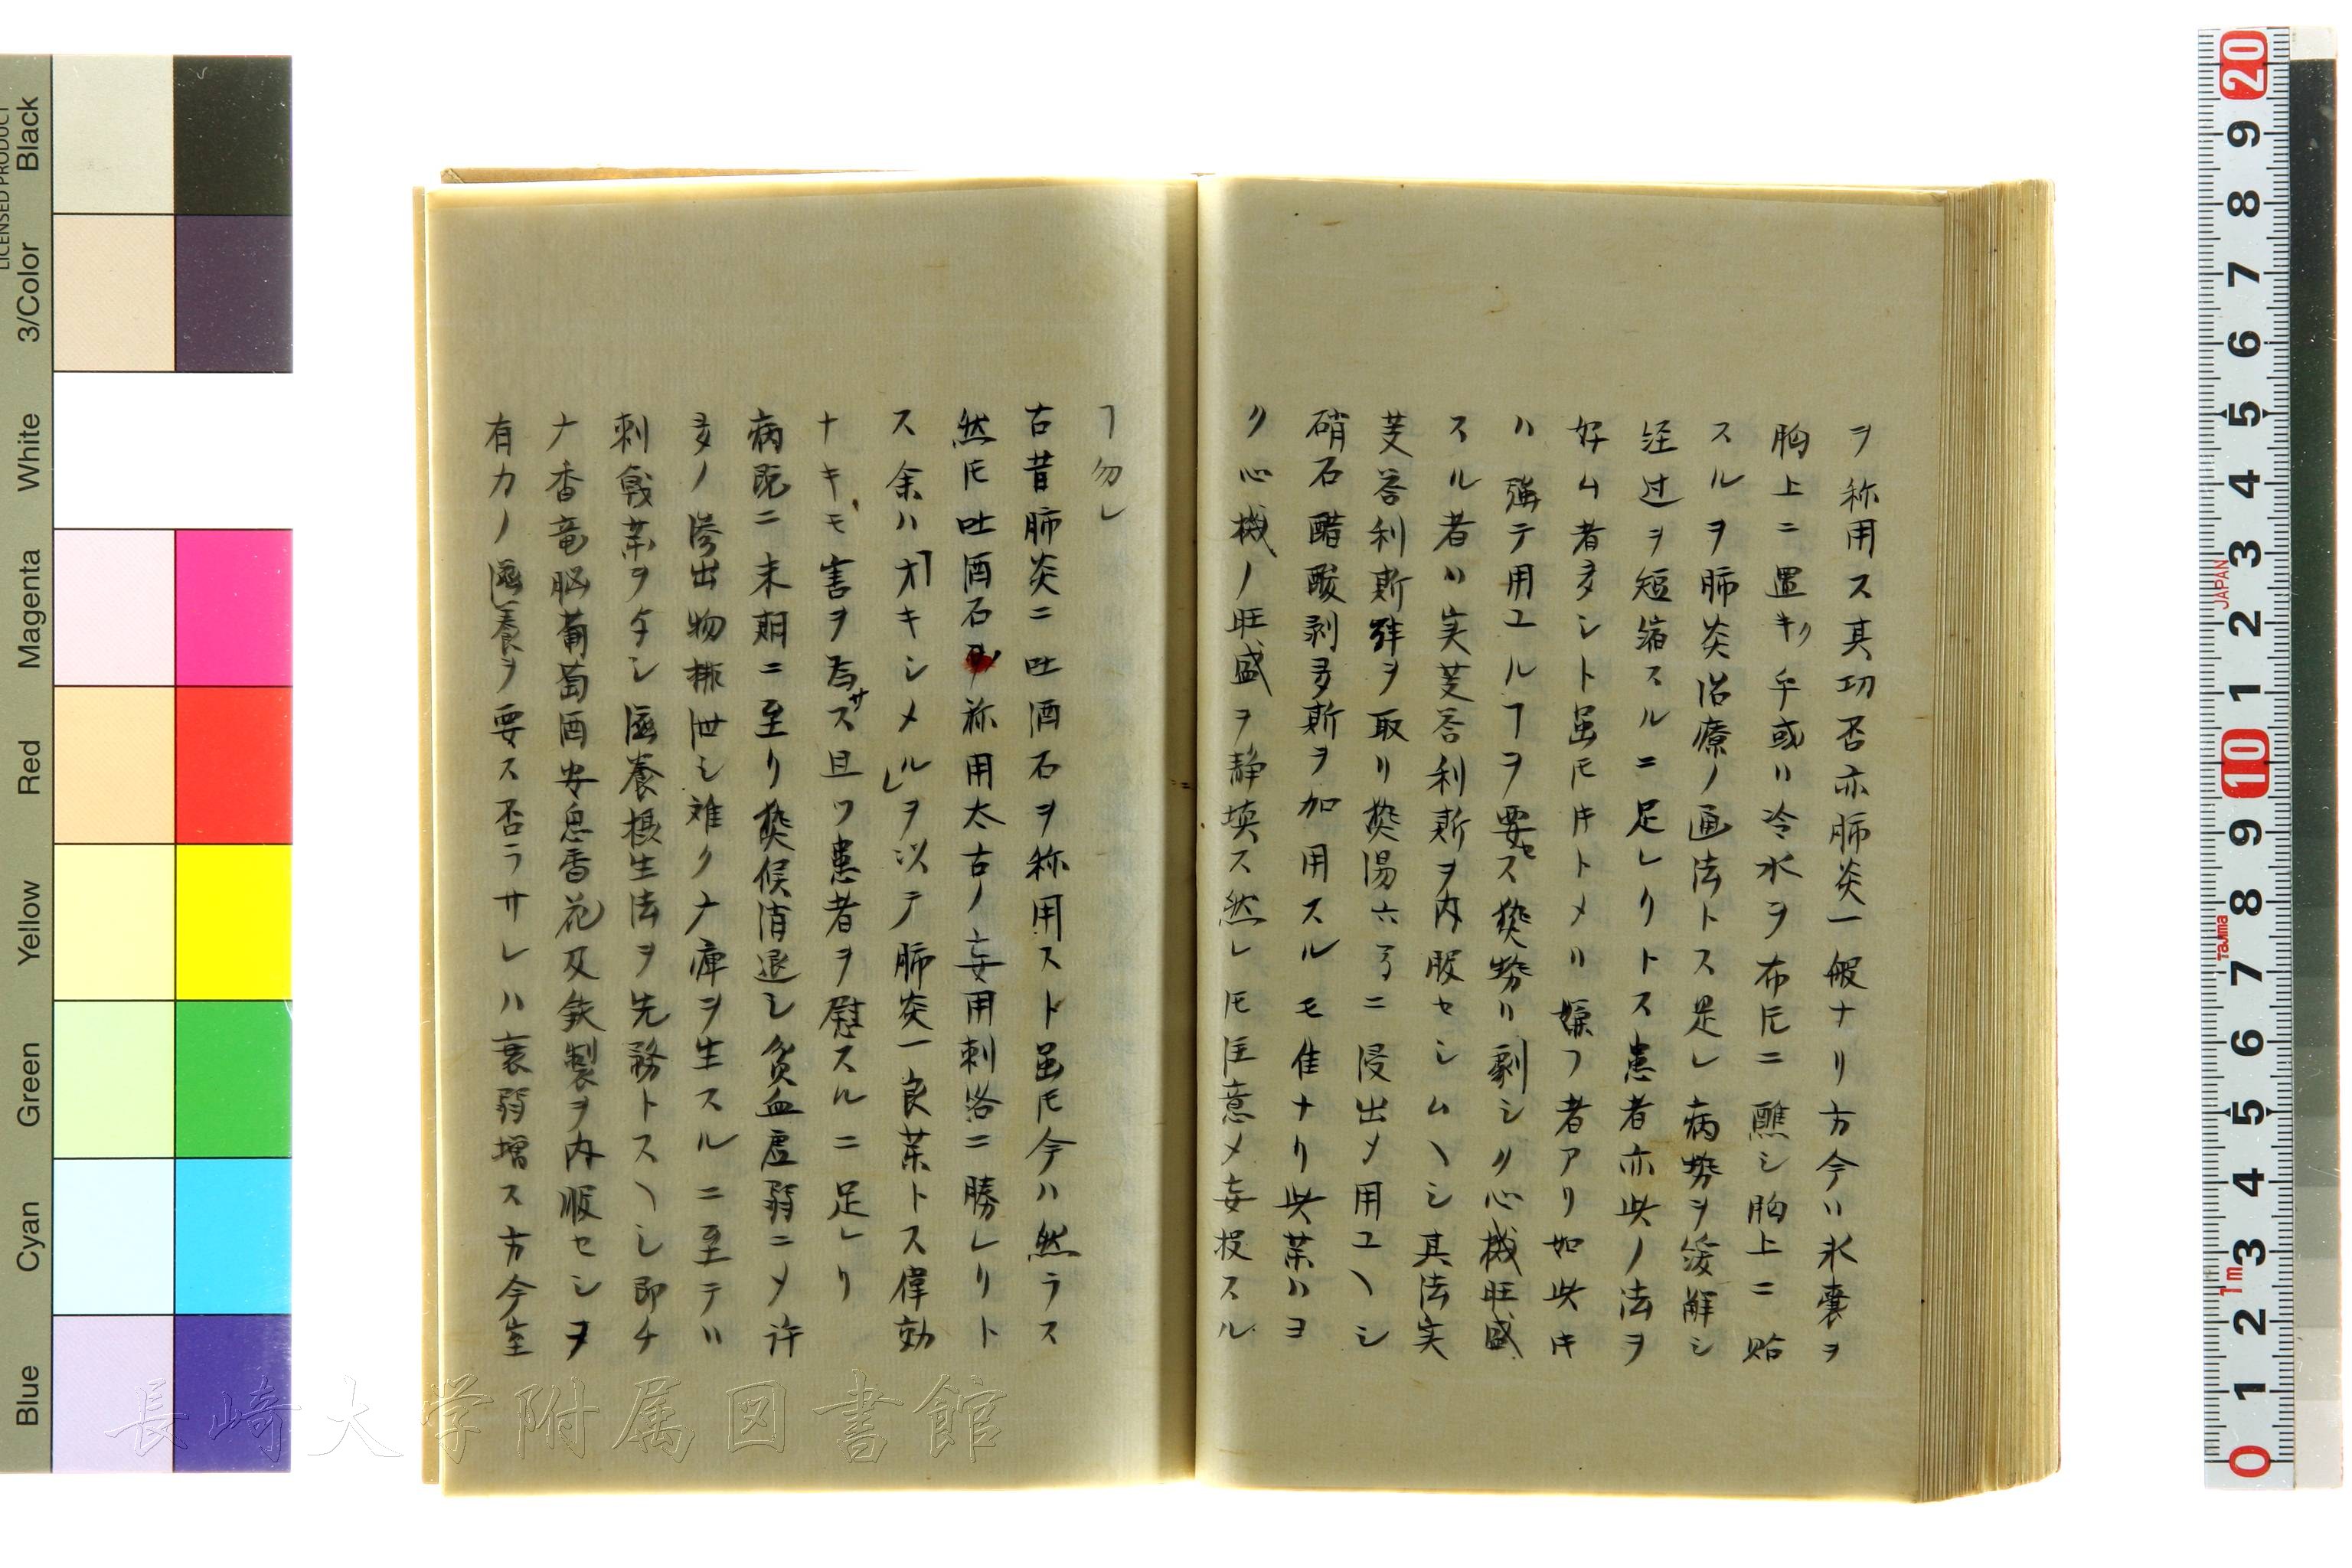 ヲ称用ス其功否亦肺炎一般ナリ方今ハ氷嚢ヲ
胸上ニ置キ乎或ハ冷水ヲ布片ニ醮シ胸上ニ貼
スルヲ肺炎治療ノ通法トス足レ病勢ヲ緩解シ
経过ヲ短縮スルニ足レリトス患者亦此ノ法ヲ
好ム者多シト虽𪜈キトメハ嫌フ者アリ如此キ
ハ強テ用ユルヿヲ要セス熱勢ハ劇シク心機旺盛
スル者ハ実芰答利斯ヲ内服セシムヘシ其法実
芰答利斯弱ヲ取リ熱湯六ニ浸出メ用ユヘシ
硝石醋酸剥多斯ヲ加用スルモ佳ナリ此薬ハヨ
ク心機ノ旺盛ヲ静填ス然レ𪜈注意メ妄投スル
ヿ勿レ
古昔肺炎ニ吐酒石ヲ称用スト虽𪜈今ハ然ラス
然𪜈吐酒石ヲ称用太古ノ妄用刺絡ニ勝レリト
ス余ハオキシメルヲ以テ肺炎一良薬トス偉効
ナキモ害ヲ為サス且ツ患者ヲ慰スルニ足レリ
病既ニ末期ニ至リ熱候消退シ貧血虚弱ニメ許
多ノ滲出物排泄シ難クナ痺ヲ生スルニ至テハ
刺戟薬ヲ与シ滋養摂生法ヲ先務トスヘシ即チ
ナ香竜脳葡萄酒安息香花及鉄製ヲ内服セシヲ
有力ノ滋養ヲ要ス否ラサレハ衰弱増ス方今室
長崎大学附属図書館
LICENSED PRODUCT
Black
3/Color
White
Magenta
Red
Yellow
Green
Cyan
Blue
20
9
8
7
6
5
4
3
JAPAN
2
1
10
9
8
Tajima
7
6
5
4
3
1m
2
1
0